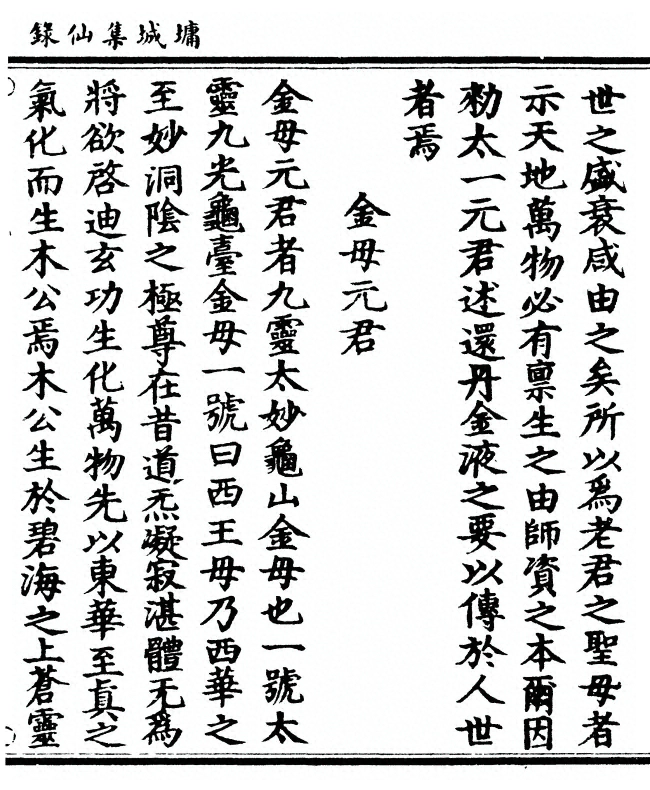 墉城集仙錄
世之盛衰咸由之矣所以爲老君之聖母者
示天地萬物必有禀生之由師資之本爾因
勑太一元君述還丹金液之要以傳於人世
者焉
金母元君
金母元君者九靈太妙龜山金母也一號太
靈九光龜臺金母一號曰西王母乃西華之
至妙洞陰之極尊在昔道炁凝寂湛體无爲
將欲啓迪玄功生化萬物先以東華至眞之
氣化而生木公焉木公生於碧海之上蒼靈